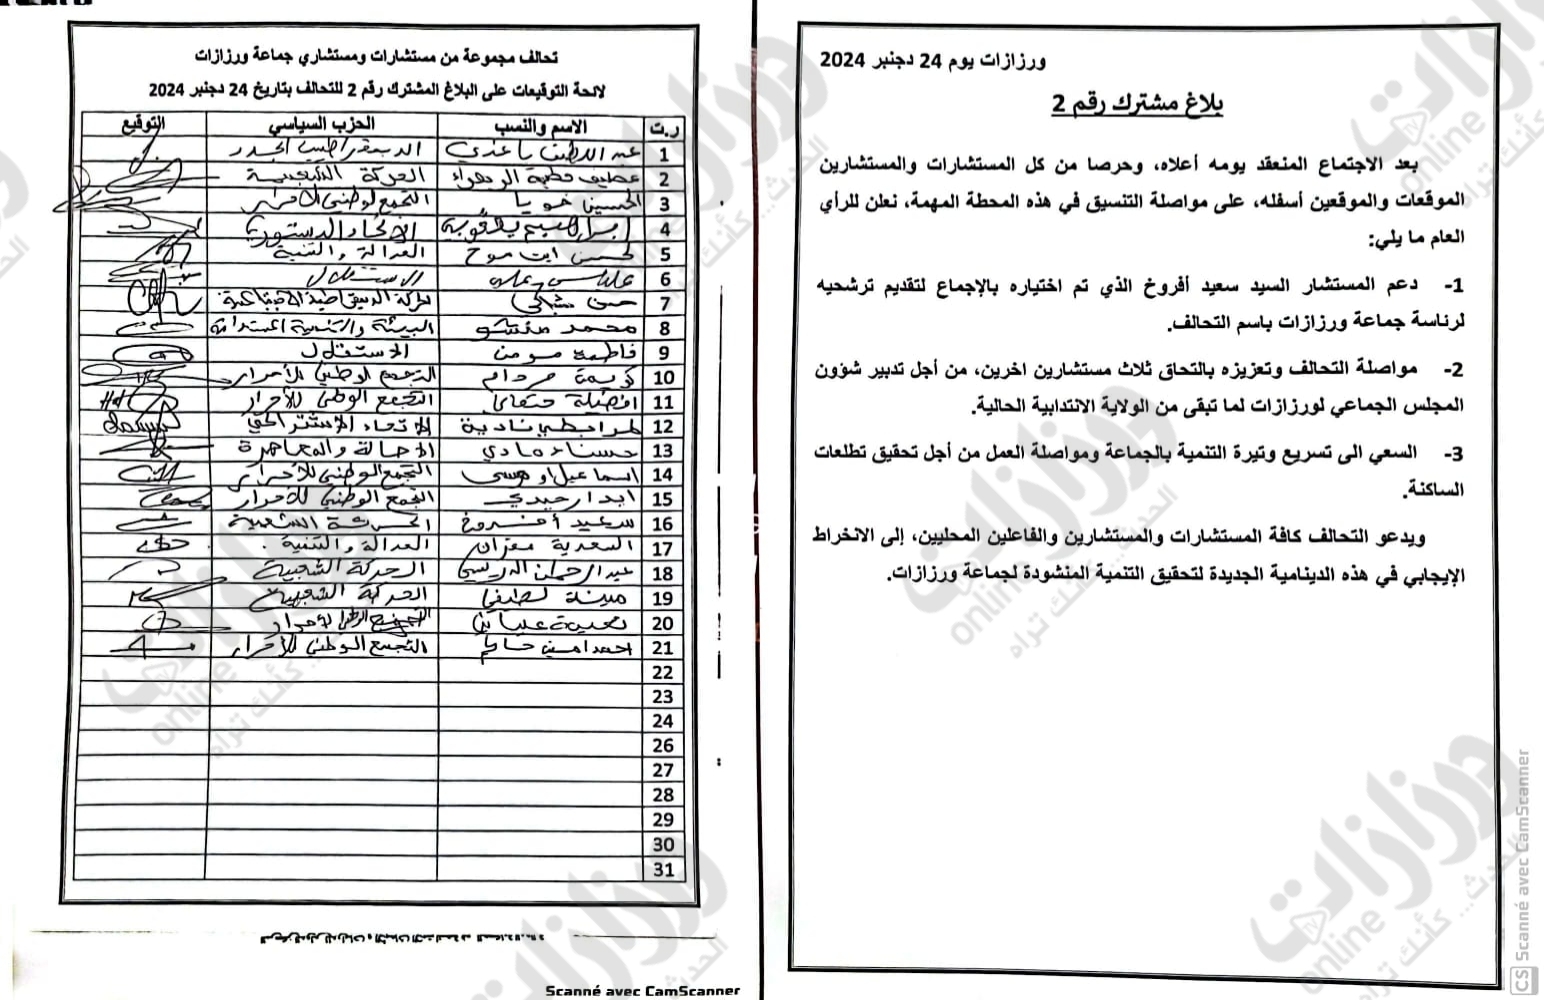 ورزازات يوم 24 دجنبر 2024
بلاغ مشترك رقم 2
بعد الاجتماع المنعقد يومه أعلاه، وحرصا من كل المستشارات والمستشارين
الموقعات والموقعين أسفله، على مواصلة التنسيق في هذه المحطة المهمة، نعلن للرأي
العام ما يلي:
1- دعم المستشار السيد سعيد أفروخ الذي تم اختياره بالإجماع لتقديم ترشحيه
لرئاسة جماعة ورزازات باسم التحالف.
2- مواصلة التحالف وتعزيزه بالتحاق ثلاث مستشارين اخرين، من أجل تدبير شؤون
المجلس الجماعي لورزازات لما تبقى من الولاية الانتدابية الحالية.
3- السعي الى تسريع وتيرة التنمية بالجماعة ومواصلة العمل من أجل تحقيق تطلعات
الساكنة.
ويدعو التحالف كافة المستشارات والمستشارين والفاعلين المحليين، إلى الانخراط
الإيجابي في هذه الدينامية الجديدة لتحقيق التنمية المنشودة لجماعة ورزازات.
تحالف مجموعة من مستشارات ومستشاري جماعة ورزازات
لائحة التوقيعات على البلاغ المشترك رقم 2 للتحالف بتاريخ 24 دجنبر 2024
ر.ت الاسم والنسب الحزب السياسي التوقيع
1 عبد اللطيف
2 الزهراء الحركة الشعبية
3 الحسين خويا التجمع الوطني الأحرار
4 الاتحاد الدستوري
5 لحسن ايت موح العدالة والتنمية
6 الاستقلال
7 حسن
8 محمد البيئة والتنمية المستدامة
9 فاطمة مومن الاستقلال
10 كريمة مردام التجمع الوطني للأحرار
11 التجمع الوطني للأحرار
12 نادية الاتحاد الاشتراكي
13 حسناء هادي الأصالة والمعاصرة
14 اسماعيل اوموسى التجمع الوطني للأحرار
15 التجمع الوطني للأحرار
16 سعيد أفروخ الحركة الشعبية
17 السعدية مقران العدالة والتنمية
18 عبد الرحمان الدريسي الحركة الشعبية
19 لطيفي الحركة الشعبية
20 التجمع الوطني للأحرار
21 احمد امين حاكم التجمع الوطني للأحرار
22
23
24
26
27
28
29
30
31
Scanné avec CamScanner
CS Scanné avec CamScanner
ورزازات
online
الحدث... كأنك تراه